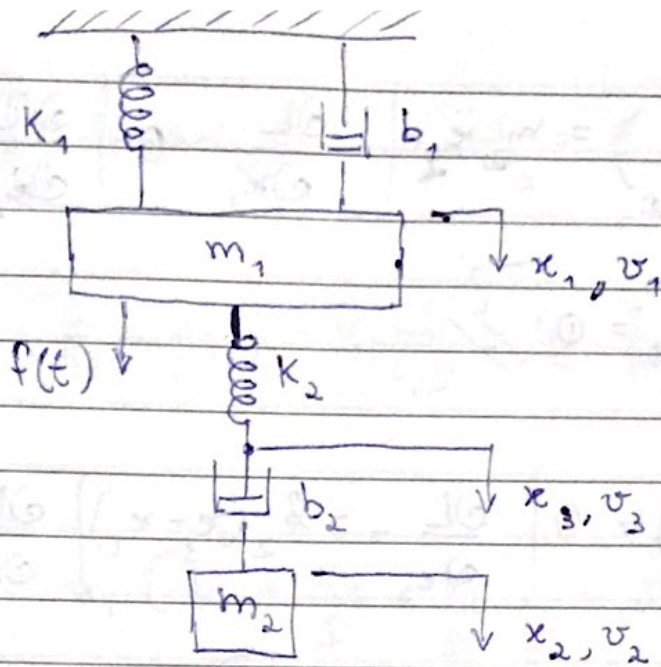 K₁
b₁
m₁
x₁, v₁
f(t)
K₂
x₃, v₃
b₂
m₂
x₂, v₂